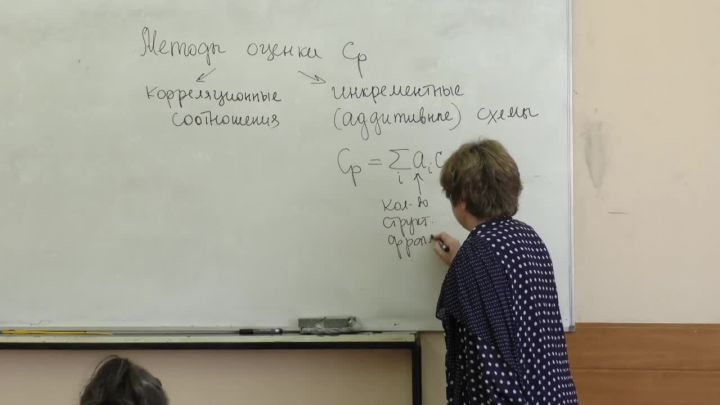 Методы оценки Cp
корреляционные
соотношения
инкрементные
(аддитивные) схемы
Cp = ∑ aᵢ c
i
кол-во
структ.
фрагм